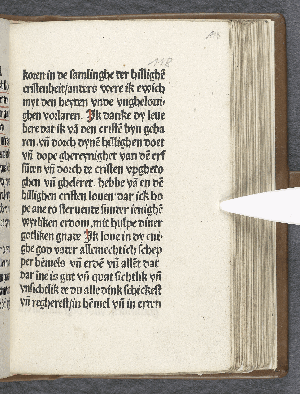 118
koren in de samlinghe der hilligẽ
cristenheit/anders were ik ewich
myt den heyden vnde vnghelouighen
vorlaren. Ik danke dy leue
here dat ik vã den cristẽ byn gebaren
vñ dorch dynẽ hillighen doet
vñ dope ghereynighet van dẽ erf
sũden vñ dorch de cristen vpghetoghen
vñ gheleret. hebbe vñ en dẽ
hillighen cristen louen dar ick hope
ane to steruende sunder ienighẽ
wyfliken erdom, mit hulpe diner
gotliken gnade Ik loue in dy ewighe
god vader allemechtich schepper
hemels vñ erdẽ vñ allẽt dat
dar ine is gut vñ quat sichtlik vñ
vnsichtlik de du alle dink schickest
vñ regherest/in hemel vñ in erden